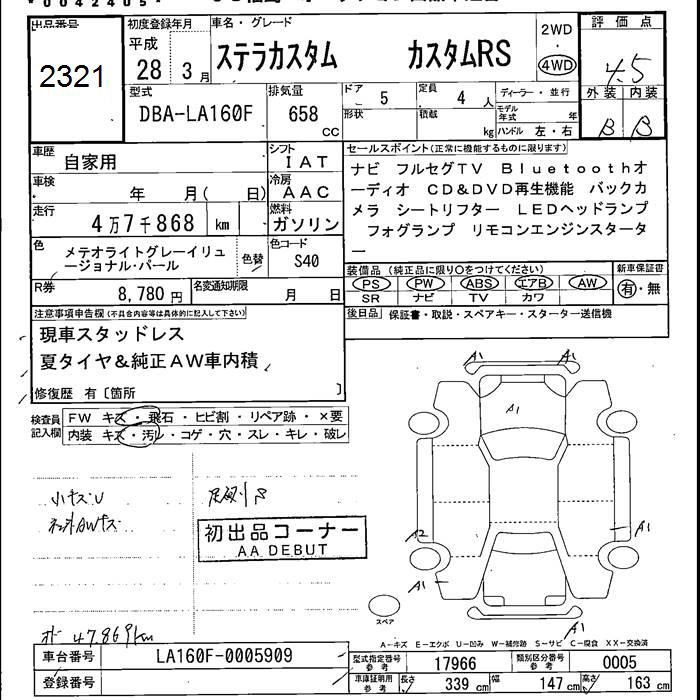 *0042405*
出品番号 初度登録年月 車名・グレード 2WD 評価点
2321 平成 28 3月 ステラカスタム カスタムRS 4WD 4.5
外装 内装
B B
型式 排気量 ドア 5 定員 4人 ディーラー・並行
DBA-LA160F 658 cc 形状 積載 kg モデル年式 年
ハンドル 左・右
車歴 自家用 シフト IAT セールスポイント(正常に機能するものに限ります)
車検 年 月( 日) 冷房 AAC
走行 4万7千868 km 燃料 ガソリン
ナビ フルセグTV Bluetoothオ
ーディオ CD&DVD再生機能 バックカ
メラ シートリフター LEDヘッドランプ
フォグランプ リモコンエンジンスタータ
ー
色 メテオライトグレーイリュ
ージョナル・パール 色替 色コード S40
装備品(純正品に限り○をつけてください) 新車保証書
PS PW ABS エアB AW 有・無
SR ナビ TV カワ
R券 8,780円 名変通知期限 月 日
後日品 保証書・取説・スペアキー・スターター送信機
注意事項申告欄(不具合内容等は具体的に記入して下さい)
現車スタッドレス
夏タイヤ&純正AW車内積
修復歴 有〔箇所 〕
検査員記入欄 FW キズ・飛石・ヒビ割・リペア跡・×要
内装 キズ・汚レ・コゲ・穴・スレ・キレ・破レ
A1 A1
A1
小キズU
初出品コーナー
AA DEBUT
A2 A1
A1
スペア
A1
47869km
A-キズ E-エクボ U-凹み W-補修跡 S-サビ C-腐食 XX-交換済
車台番号 LA160F-0005909 型式指定番号参考 17966 類別区分番号参考 0005
登録番号 車庫証明用参考 長さ 339cm 幅 147cm 高さ 163cm